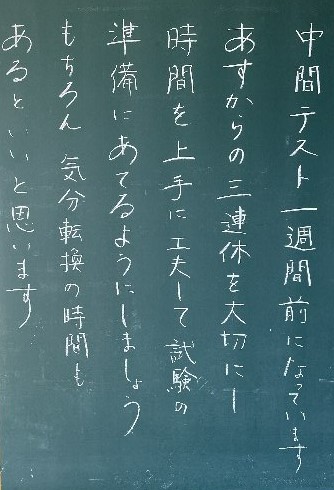 中間テスト一週間前になっています
あすからの三連休を大切にし
時間を上手に工夫して試験の
準備にあてるようにしましょう
もちろん 気分転換の時間も
あるといいと思います